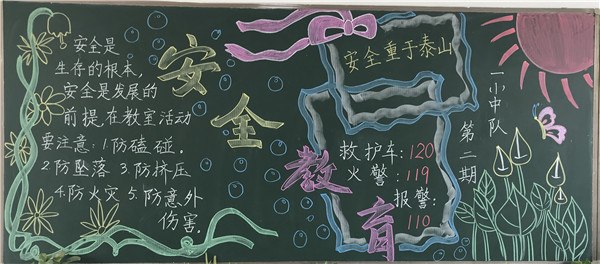 安全是
生存的根本,
安全是发展的
前提在教室活动
要注意:1.防磕碰.
2.防坠落 3.防挤压
4.防火灾 5.防意外
伤害.
安全教育
安全重于泰山
救护车:120
火警:119
报警:
110
一小中队
第二期